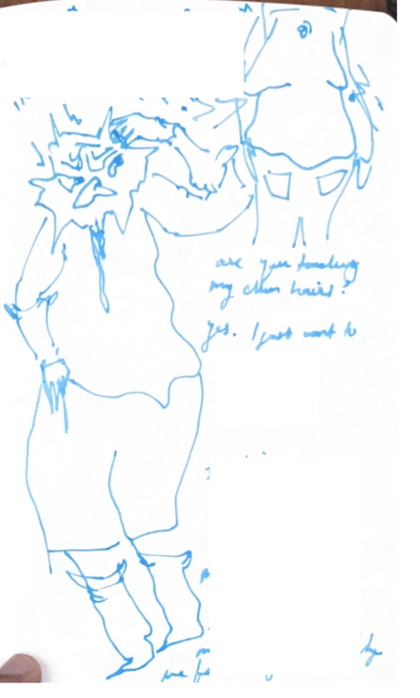 are you touching
my chin hairs?
yes. I just want to